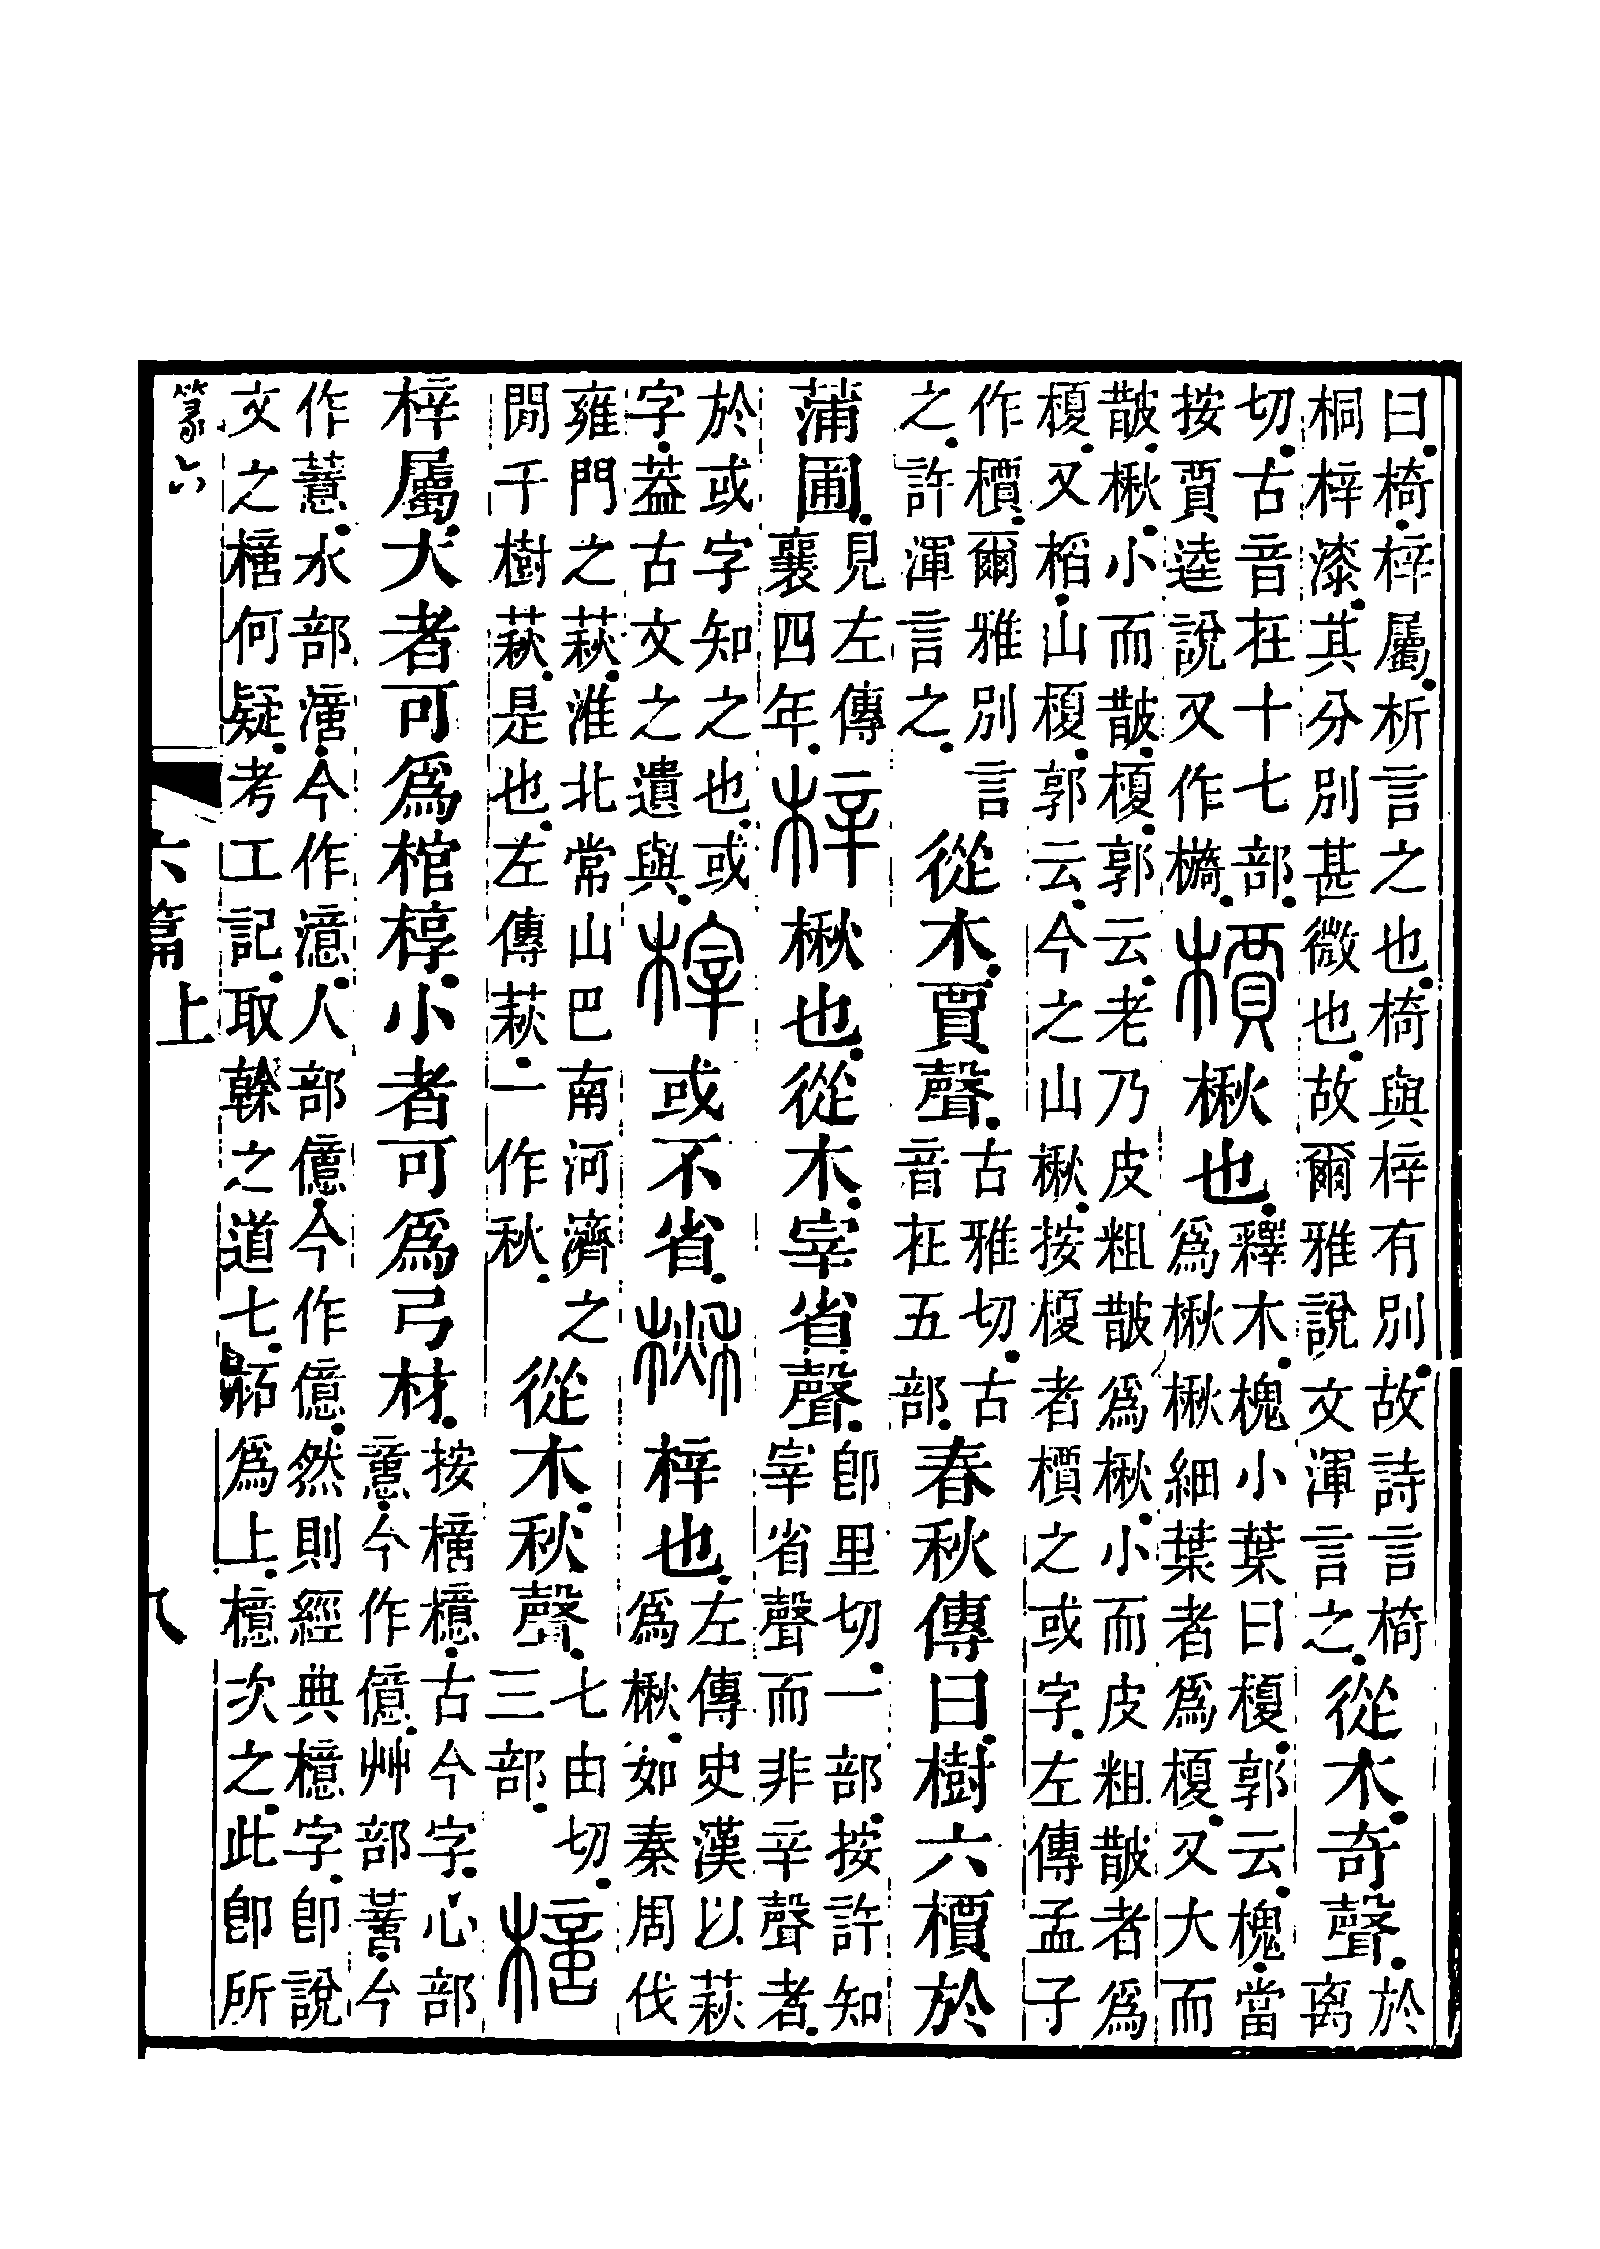 曰椅梓屬析言之也椅與梓有別故詩言椅
桐梓漆其分別甚微也故爾雅說文渾言之
從木奇聲
於
离
切古音在十七部
按賈逵說又作檹
檟楸也
釋木槐小葉曰榎郭云槐當
爲楸楸細葉者爲榎又大而
皵楸小而皵榎郭云老乃皮粗皵爲楸小而皮粗皵者爲
榎又槄山榎郭云今之山楸按榎者檟之或字左傳孟子
作檟爾雅別言
之許渾言之
從木賈聲
古雅切古
音在五部
春秋傳曰樹六檟於
蒲圃
見左傳
襄四年
梓楸也從木宰省聲
卽里切一部按許知
宰省聲而非辛聲者
於或字知之也或
字葢古文之遺與
榟或不省楸梓也
左傳史漢以萩
爲楸如秦周伐
雍門之萩淮北常山巴南河濟之
閒千樹萩是也左傳萩一作秋
從木秋聲
七由切
三部
𣚍
梓屬大者可爲棺椁小者可爲弓材
按𣚍檍古今字心部
𢡃今作億艸部𧁙今
作薏水部𤁋今作澺人部𠎵今作億然則經典檍字卽說
文之𣚍何疑考工記取榦之道七柘爲上檍次之此卽所
篆六
六篇上
八